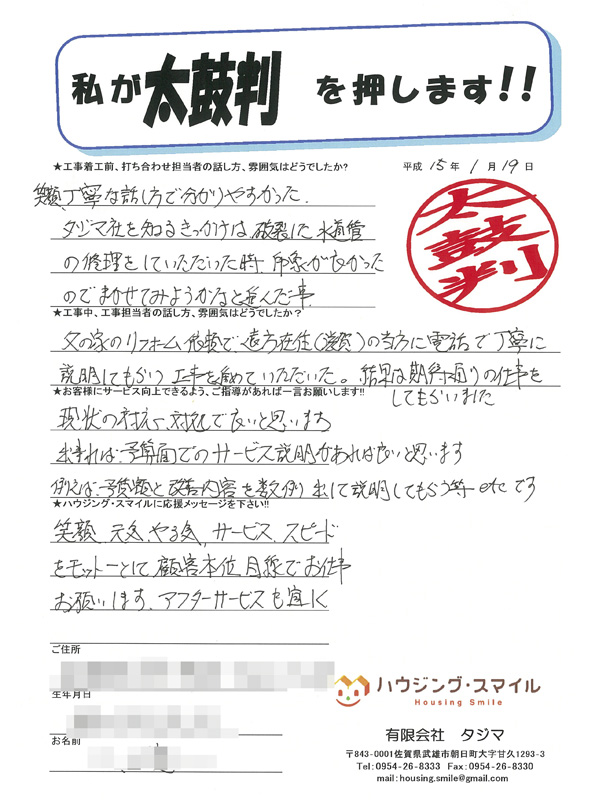 私が太鼓判を押します!!
★工事着工前、打ち合わせ担当者の話し方、雰囲気はどうでしたか?
平成 15 年 1 月 19 日
笑顔、丁寧な話し方で分かりやすかった.
太鼓判
タジマ社を知るきっかけは、破裂した水道管
の修理をしていただいた時 印象が良かった
のでまかせてみようかなと進んだ事.
★工事中、工事担当者の話し方、雰囲気はどうでしたか?
父の家のリフォーム依頼で遠方在住(滋賀)の当方に電話で丁寧に
説明してもらい工事を進めていただいた。結果は期待通りの仕事を
してもらいました
★お客様にサービス向上できるよう、ご指導があれば一言お願いします!!
現状の対応、対処で良いと思います
出来れば、予算面でのサービス説明があれば良いと思います
例えば、予算額と改善内容を数例出して説明してもらう等 etc です
★ハウジング・スマイルに応援メッセージを下さい!!
笑顔、元気、やる気、サービス、スピード
をモットーとして 顧客本位、目線でお仕事
お願いします、アフターサービスも宜しく
ご住所
生年月日
お名前
ハウジング・スマイル
Housing Smile
有限会社 タジマ
〒843-0001佐賀県武雄市朝日町大字甘久1293-3
Tel:0954-26-8333 Fax:0954-26-8330
mail:housing.smile@gmail.com